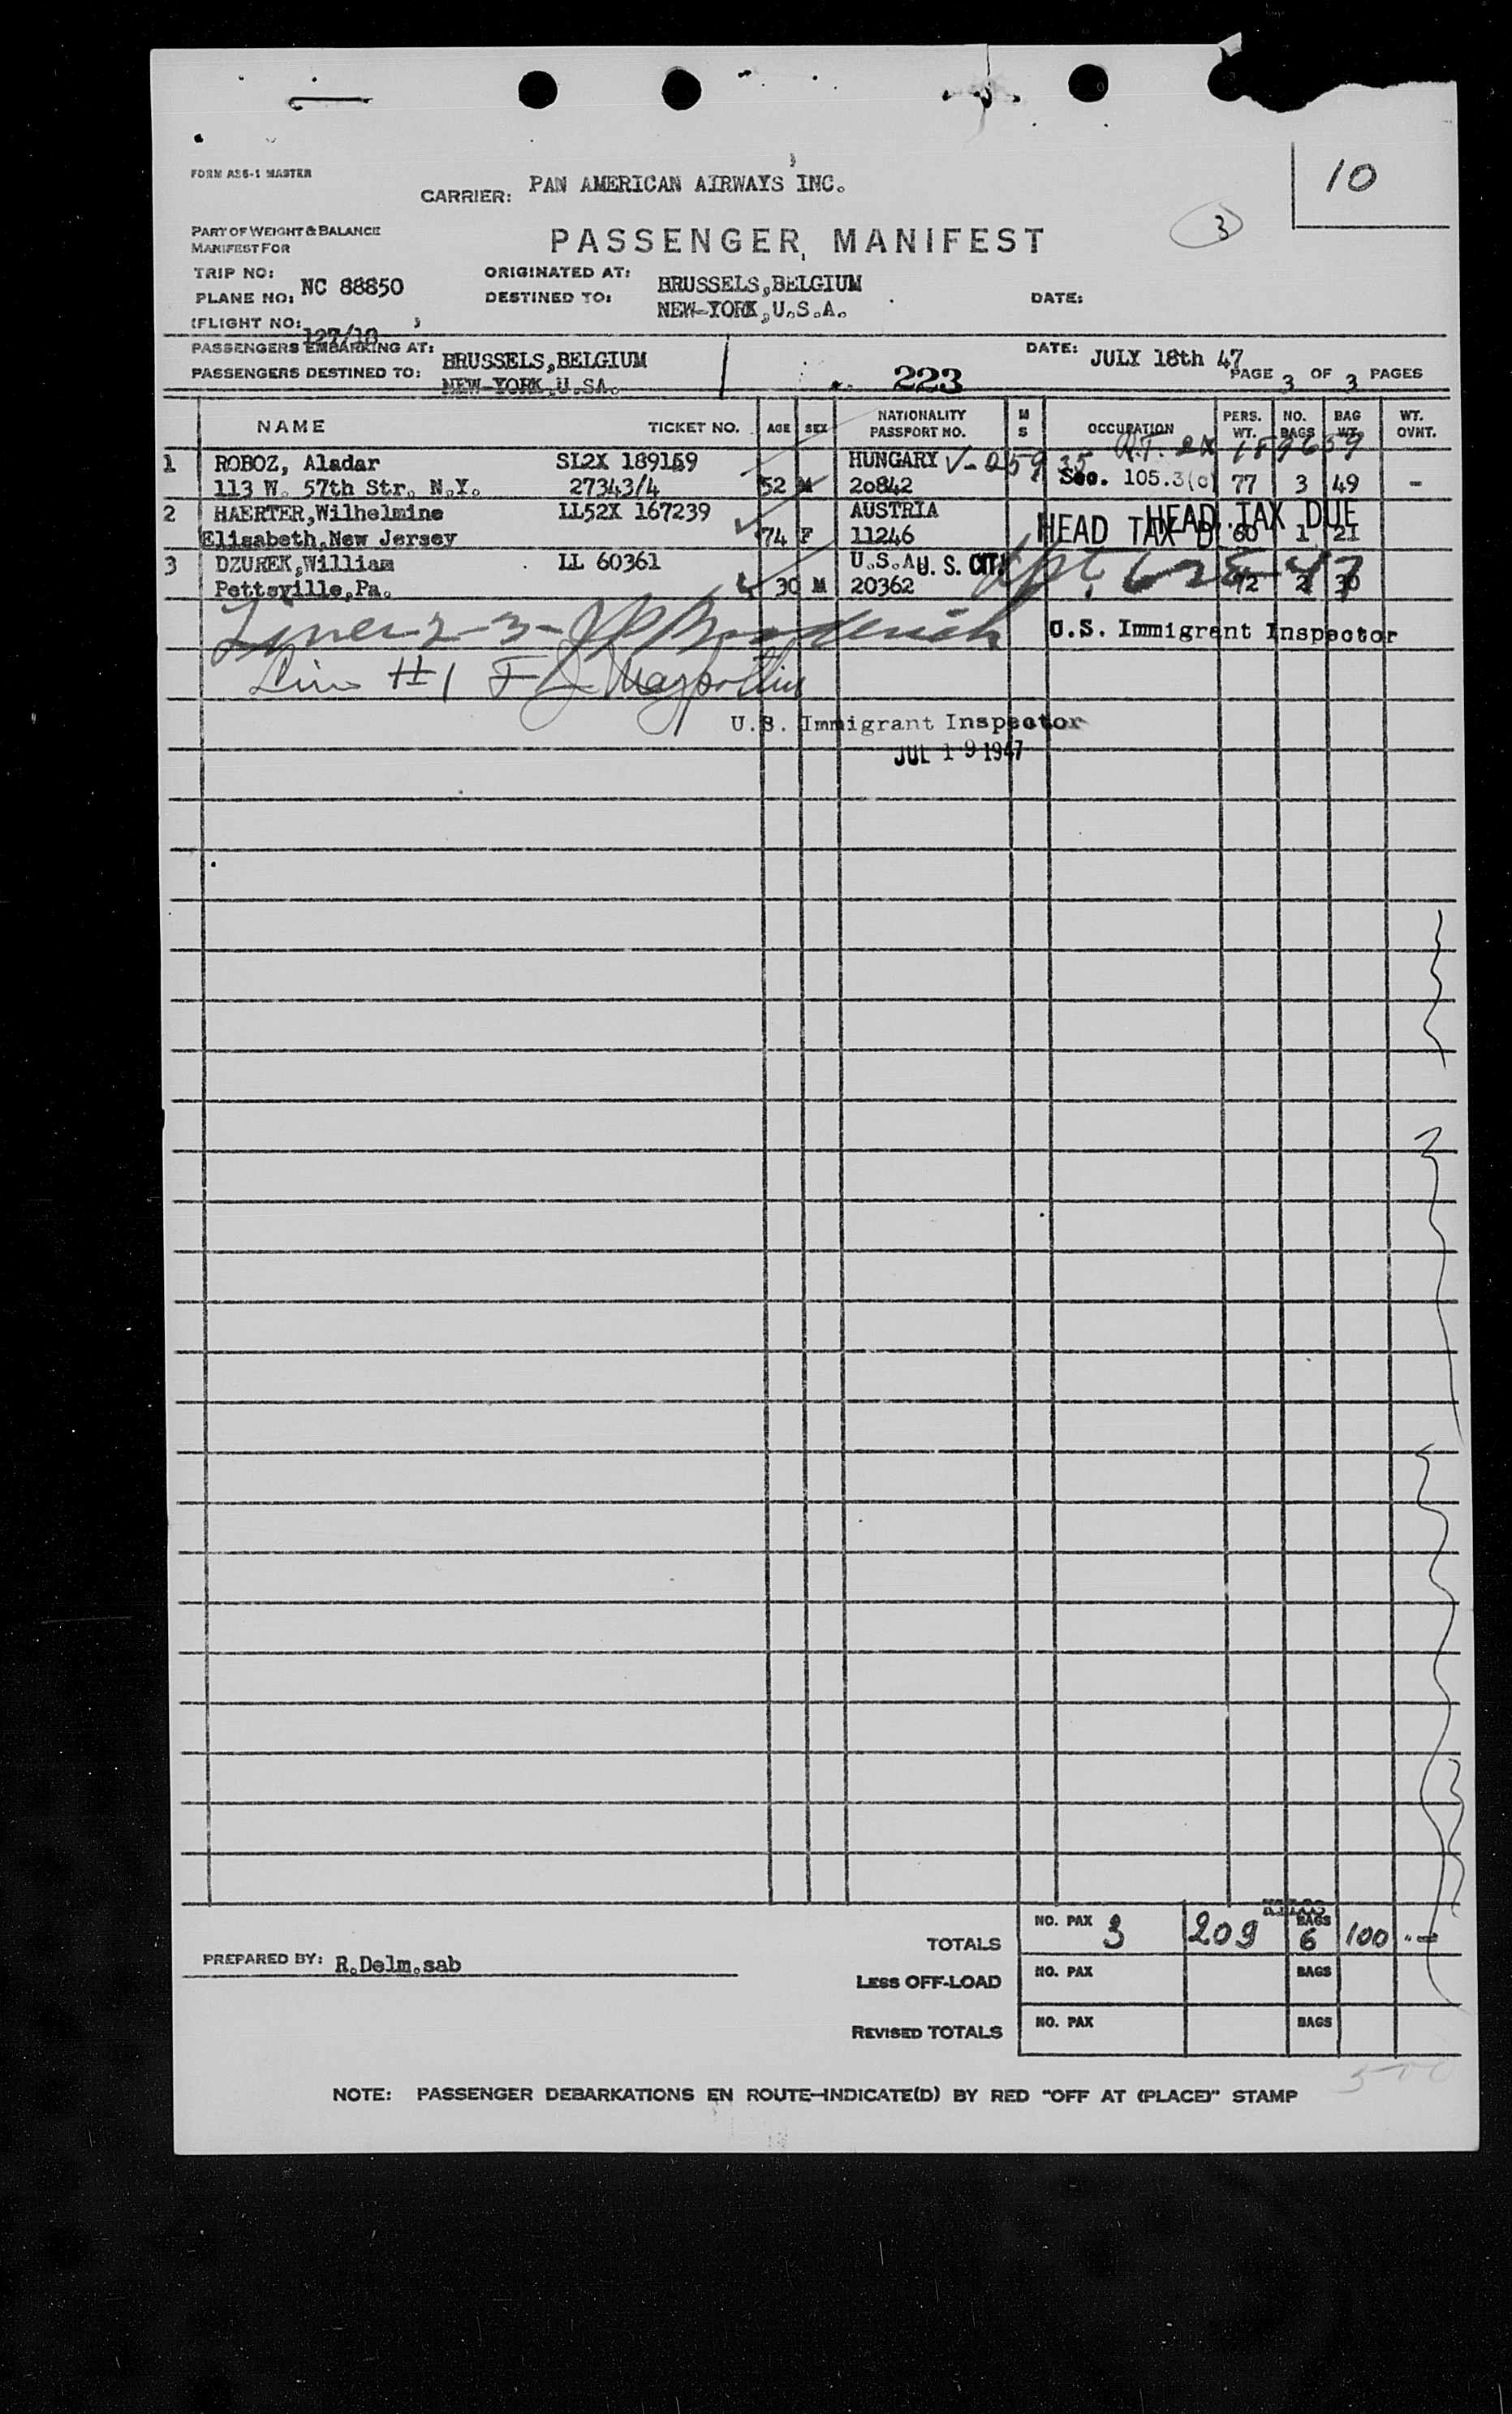 10
FORM ASS-1 MASTER
CARRIER: PAN AMERICAN AIRWAYS INC.
3
PART OF WEIGHT & BALANCE
MANIFEST FOR
PASSENGER MANIFEST
TRIP NO:
PLANE NO: NC 88850
(FLIGHT NO: 127/18 )
ORIGINATED AT: BRUSSELS,BELGIUM
DESTINED TO: NEW-YORK,U.S.A.
DATE:
PASSENGERS EMBARKING AT: BRUSSELS,BELGIUM
PASSENGERS DESTINED TO: NEW-YORK,U.SA.
223
DATE: JULY 18th 47
PAGE 3 OF 3 PAGES
NAME TICKET NO. AGE SEX NATIONALITY PASSPORT NO. M S OCCUPATION PERS. WT. NO. BAGS BAG WT. WT. OVNT.
1 ROBOZ, Aladar SI2X 189159 HUNGARY
113 W. 57th Str. N.Y. 27343/4 52 M 20842 Sec. 105.3(c) 77 3 49 -
2 HAERTER,Wilhelmine LL52X 167239 AUSTRIA HEAD TAX DUE
Elisabeth,New Jersey 74 F 11246 HEAD TAX D 60 1 21
3 DZUREK,William LL 60361 U.S.A U. S. CIT.
Pottsville,Pa. 30 M 20362 72 2 30
Lines 2-3- Broderick U.S. Immigrant Inspector
Line #1 F J
U.S. Immigrant Inspector
JUL 19 1947
TOTALS NO. PAX 3 209 BAGS 6 100 -
PREPARED BY: R.Delm.sab
LESS OFF-LOAD NO. PAX BAGS
REVISED TOTALS NO. PAX BAGS
NOTE: PASSENGER DEBARKATIONS EN ROUTE—INDICATE(D) BY RED "OFF AT (PLACE)" STAMP